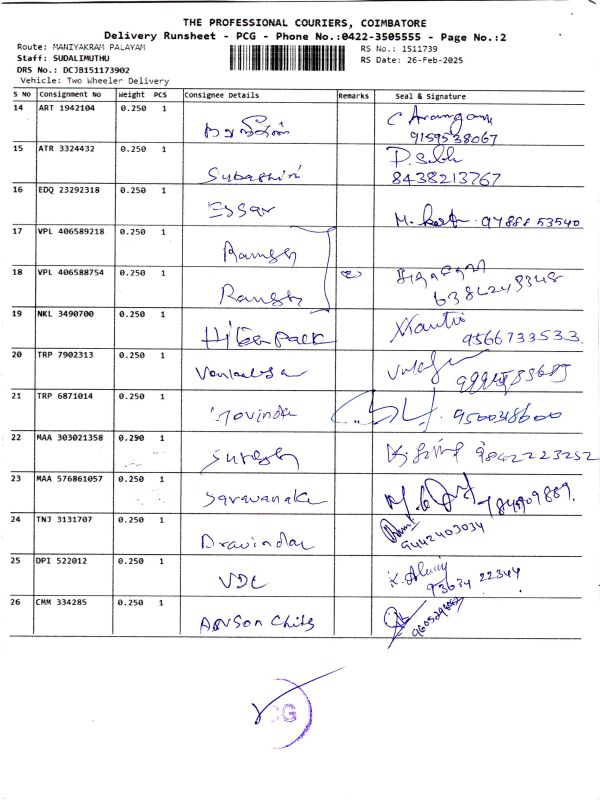 THE PROFESSIONAL COURIERS, COIMBATORE
Delivery Runsheet - PCG - Phone No.:0422-3505555 - Page No.:2
Route: MANIYAKRAM PALAYAM RS No.: 1511739
Staff: SUDALIMUTHU RS Date: 26-Feb-2025
DRS No.: DCJB151173902
Vehicle: Two Wheeler Delivery
S NO Consignment No Weight PCS Consignee Details Remarks Seal & Signature
14 ART 1942104 0.250 1
9159538067
15 ATR 3324432 0.250 1 Subashini
8438213767
16 EDQ 23292318 0.250 1 Essar
97888 53540
17 VPL 406589218 0.250 1 Ramesh
18 VPL 406588754 0.250 1 Ramesh
19 NKL 3490700 0.250 1 Hiten pack
9566733533
20 TRP 7902313 0.250 1
21 TRP 6871014 0.250 1 Govindan
22 MAA 303021358 0.250 1 Suresh 9842223252
23 MAA 576861057 0.250 1
24 TNJ 3131707 0.250 1 Dravindar
9442403034
25 DPI 522012 0.250 1
93634 22344
26 CMM 334285 0.250 1